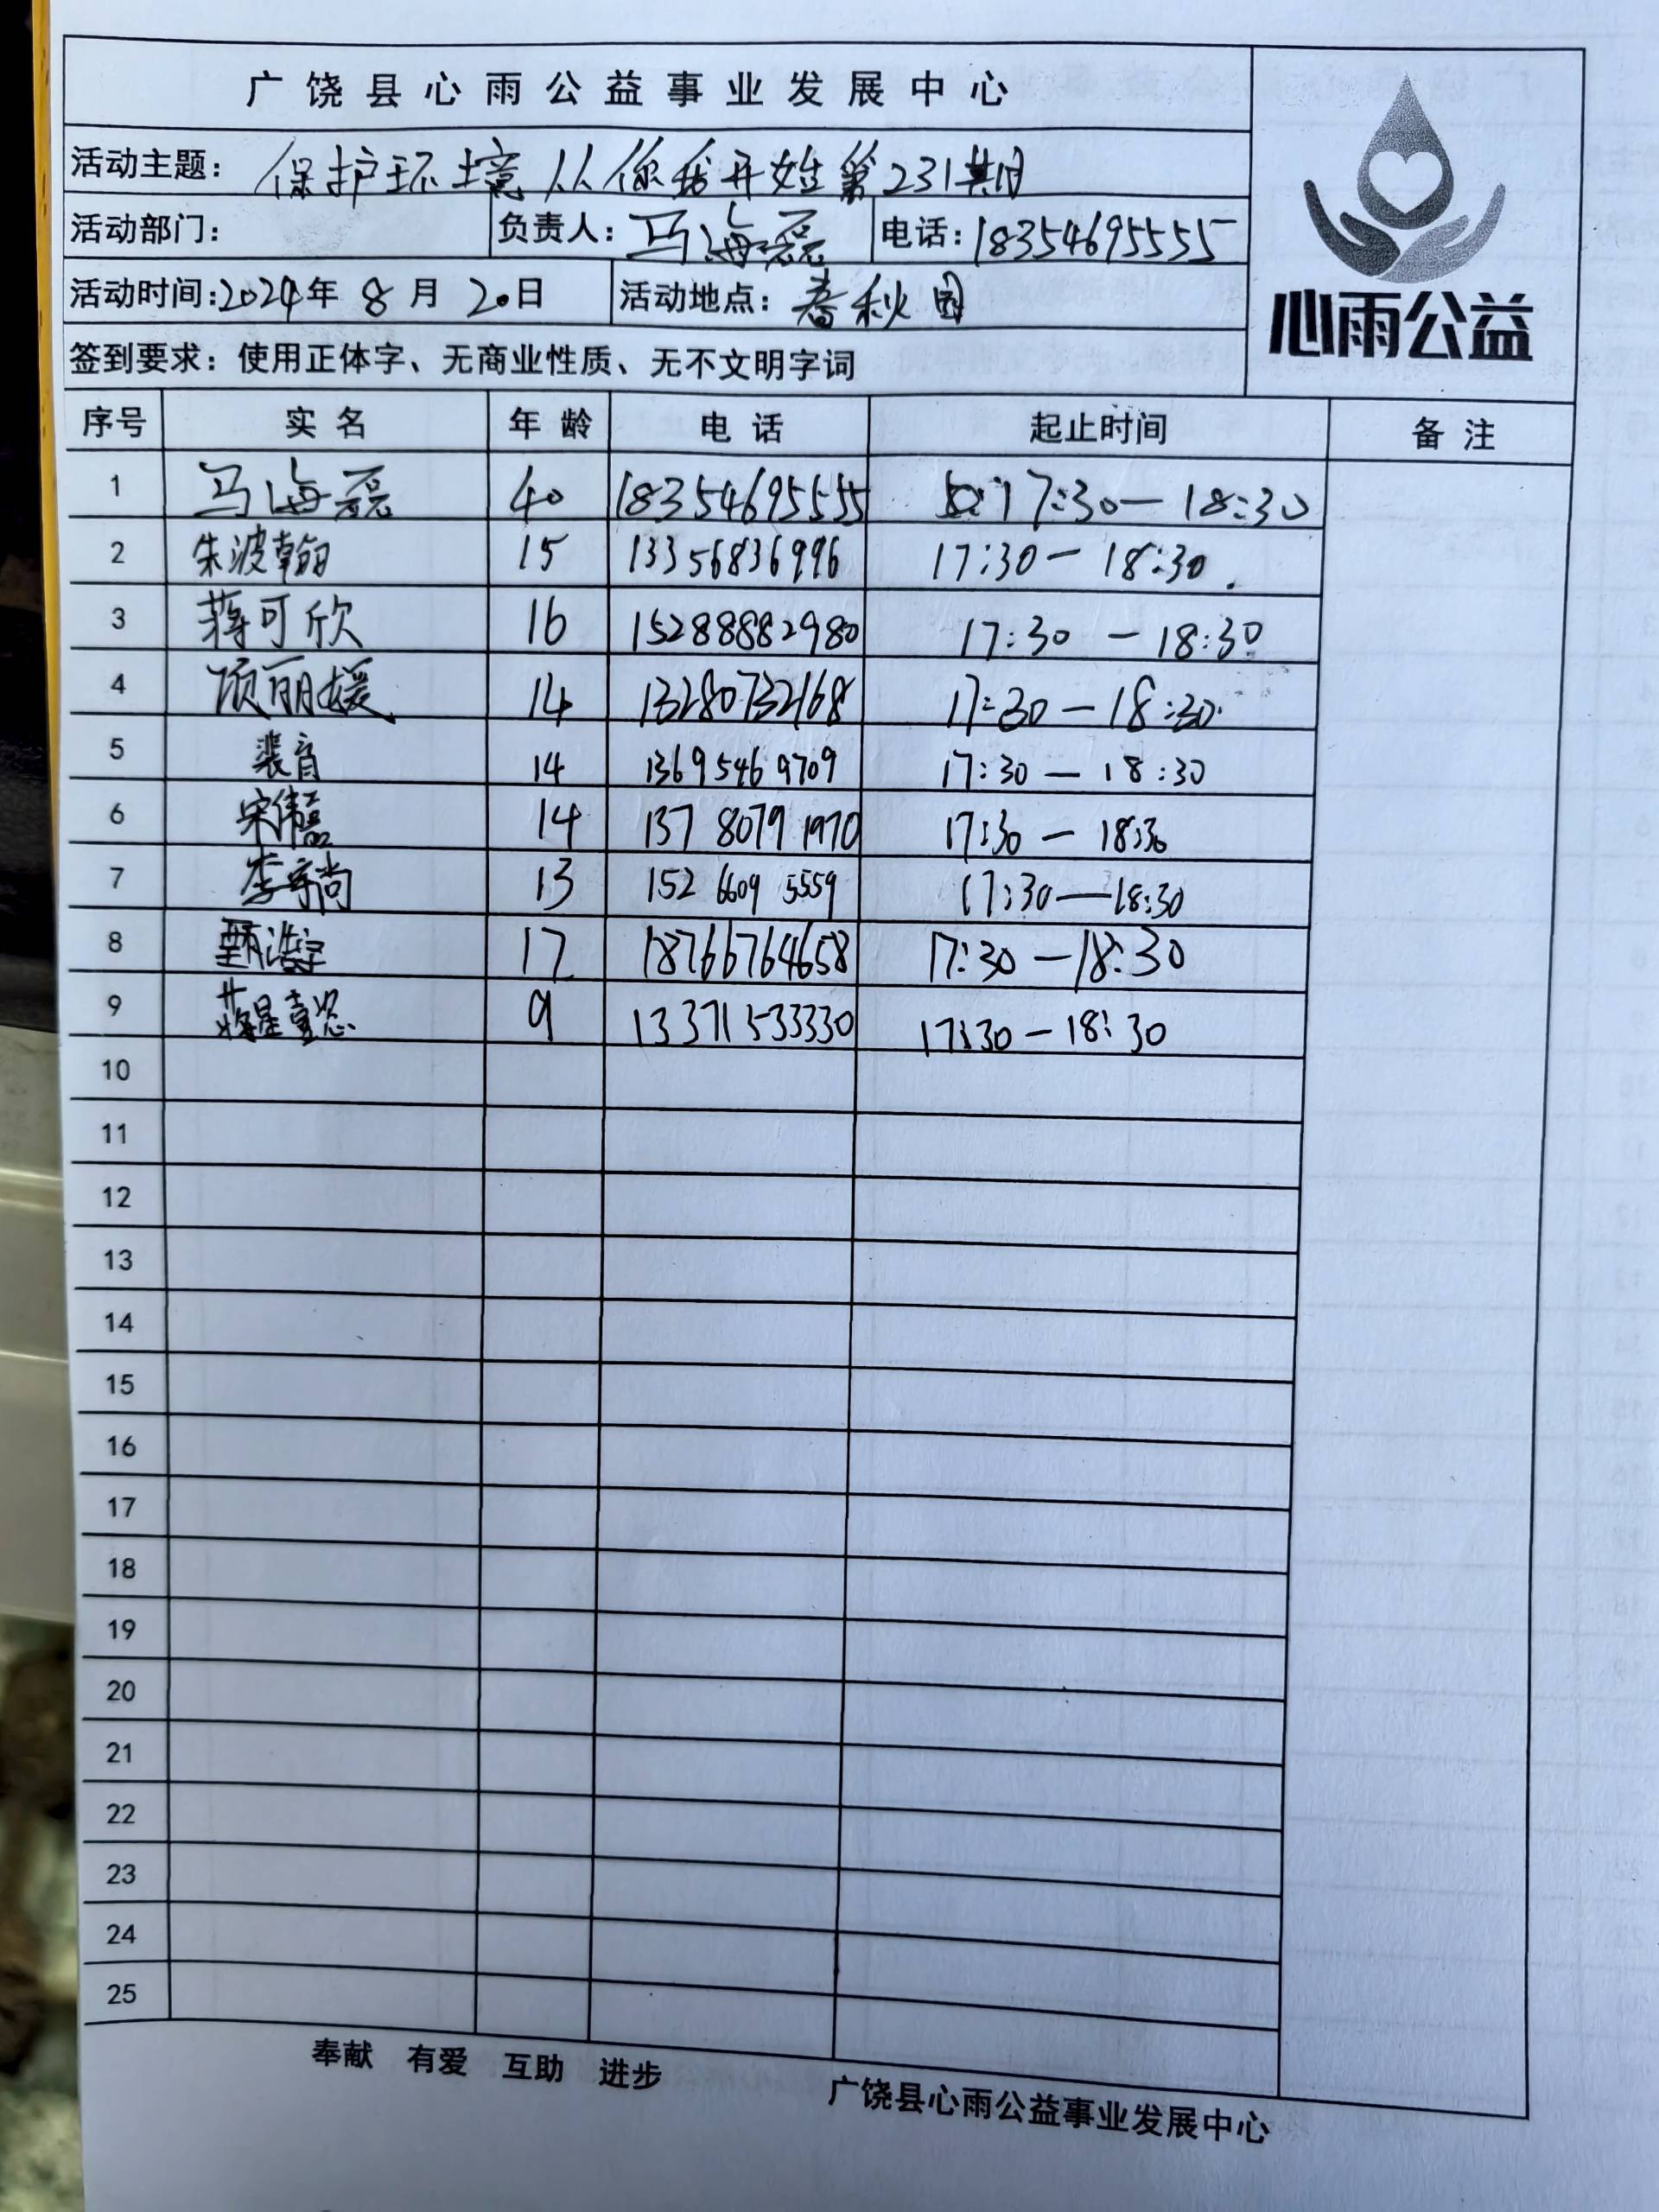 广饶县心雨公益事业发展中心
活动主题：保护环境从你我开始第231期
活动部门： 负责人：马海磊 电话：18354695555
活动时间：2024年8月20日 活动地点：春秋园
心雨公益
签到要求：使用正体字、无商业性质、无不文明字词
序号 实名 年龄 电话 起止时间 备注
1 马海磊 40 18354695555 17:30—18:30
2 朱波翰 15 13356836996 17:30—18:30.
3 蒋可欣 16 15288882980 17:30—18:30
4 项丽媛 14 13280732168 17:30—18:30
5 裴育 14 13695469709 17:30—18:30
6 宋伟 14 137 8079 1970 17:30—18:30
7 李宇尚 13 152 6609 5559 17:30—18:30
8 甄浩宇 17 18766764658 17:30—18:30
9 9 13371533330 17:30—18:30
10
11
12
13
14
15
16
17
18
19
20
21
22
23
24
25
奉献 有爱 互助 进步
广饶县心雨公益事业发展中心